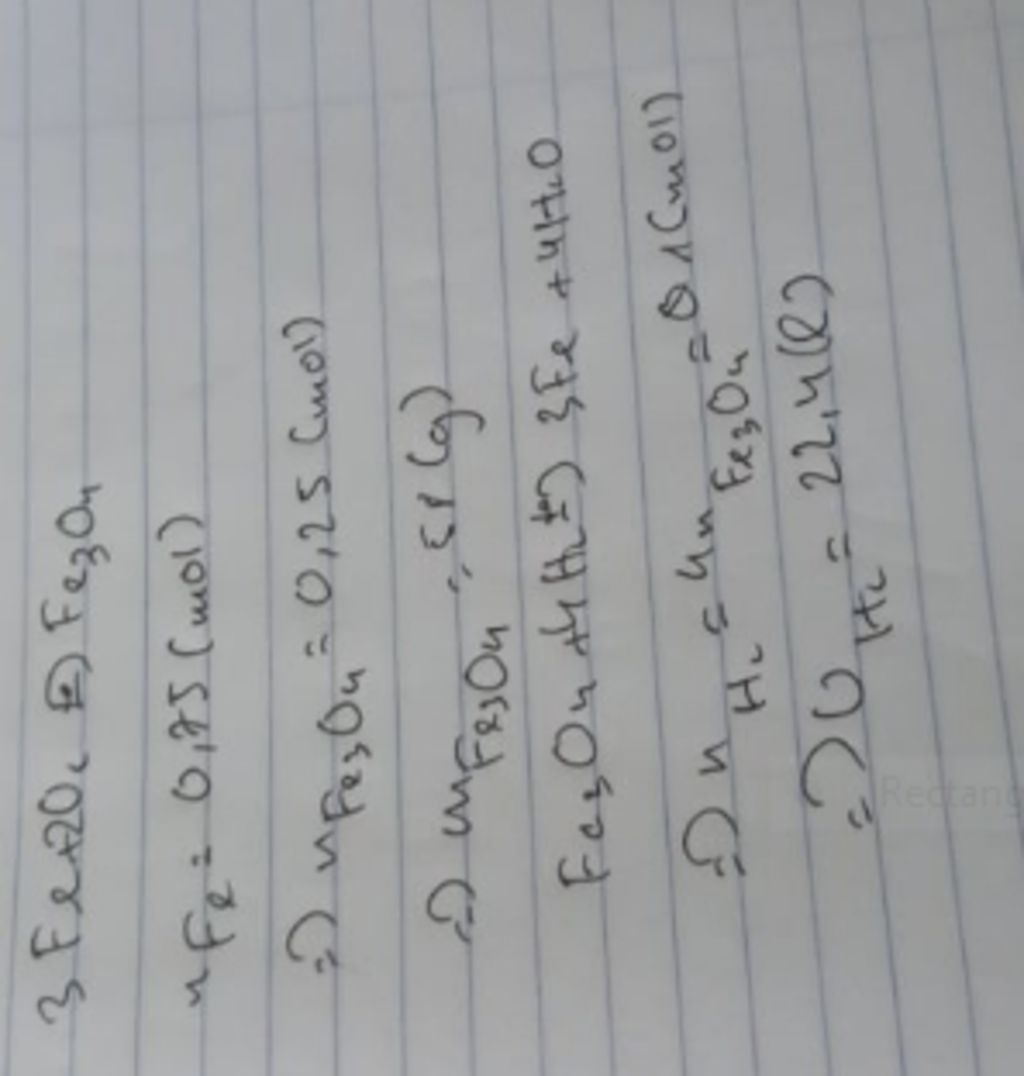 3Fe+2O₂ → Fe₃O₄
nFe = 0,75 (mol)
=> nFe₃O₄ = 0,25 (mol)
=> mFe₃O₄ = 58 (g)
Fe₃O₄ + 4H₂ 3Fe + 4H₂O
=> nH₂ = 4nFe₃O₄ = 01 (mol)
=> VH₂ = 22,4 (l)
Rectang